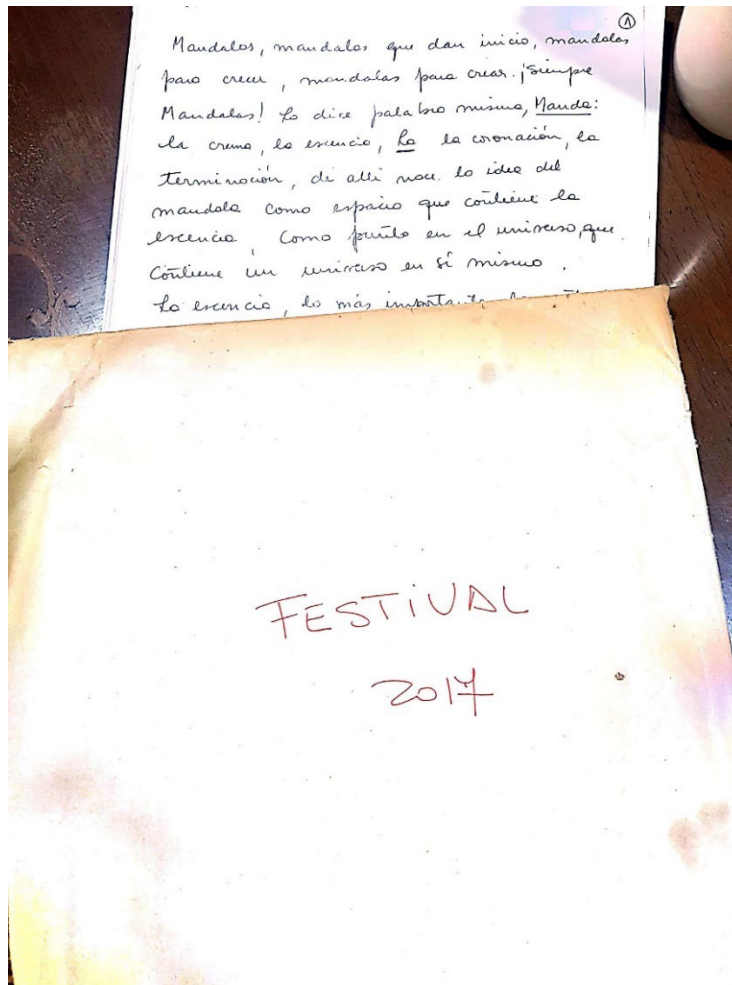 ①
Mandalas, mandalas que dan inicio, mandalas
para crecer, mandalas para crear. ¡Siempre
Mandalas! Lo dice palabra misma, Manda:
la crema, la escencia, La la coronación, la
terminación, de alli nace la idea del
mandala como espacio que contiene la
escencia, como punto en el universo, que
contiene un universo en sí mismo.
La escencia, lo más importante
FESTiVAL
2017